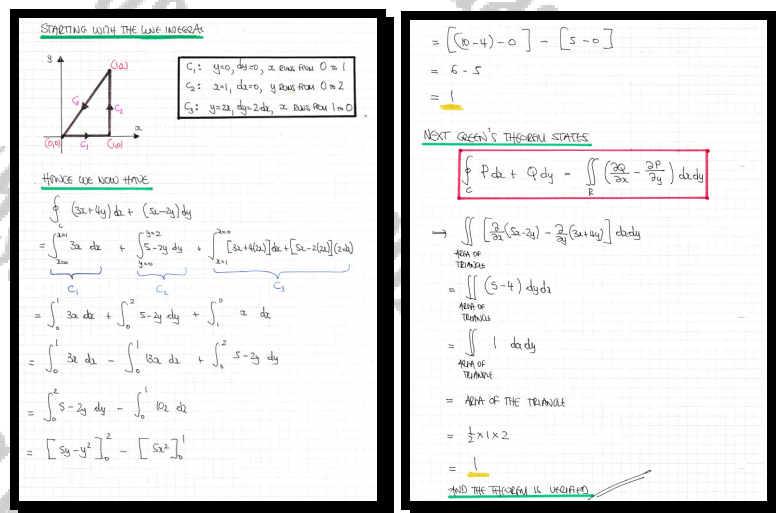 STARTING WITH THE LINE INTEGRAL
y
(1,2)
C₃
C₂
(0,0)
C₁
(1,0)
x
C₁: y=0, dy=0, x RUNS FROM 0 TO 1
C₂: x=1, dx=0, y RUNS FROM 0 TO 2
C₃: y=2x, dy=2dx, x RUNS FROM 1 TO 0
HENCE WE NOW HAVE
∮_C (3x+4y)dx + (5x-2y)dy
= ∫_{x=0}^{x=1} 3x dx + ∫_{y=0}^{y=2} 5-2y dy + ∫_{x=1}^{x=0} [3x+4(2x)]dx+[5x-2(2x)](2dx)
C₁ C₂ C₃
= ∫_0^1 3x dx + ∫_0^2 5-2y dy + ∫_1^0 x dx
= ∫_0^1 3x dx - ∫_0^1 13x dx + ∫_0^2 5-2y dy
= ∫_0^2 5-2y dy - ∫_0^1 10x dx
= [5y-y²]_0^2 - [5x²]_0^1
= [(10-4)-0] - [5-0]
= 6-5
= 1
NEXT GREEN'S THEOREM STATES
∮_C P dx + Q dy = ∬_R (∂Q/∂x - ∂P/∂y) dxdy
→ ∬ [∂/∂x(5x-2y) - ∂/∂y(3x+4y)] dxdy
AREA OF
TRIANGLE
= ∬ (5-4) dydx
AREA OF
TRIANGLE
= ∬ 1 dxdy
AREA OF
TRIANGLE
= AREA OF THE TRIANGLE
= ½×1×2
= 1
AND THE THEOREM IS VERIFIED